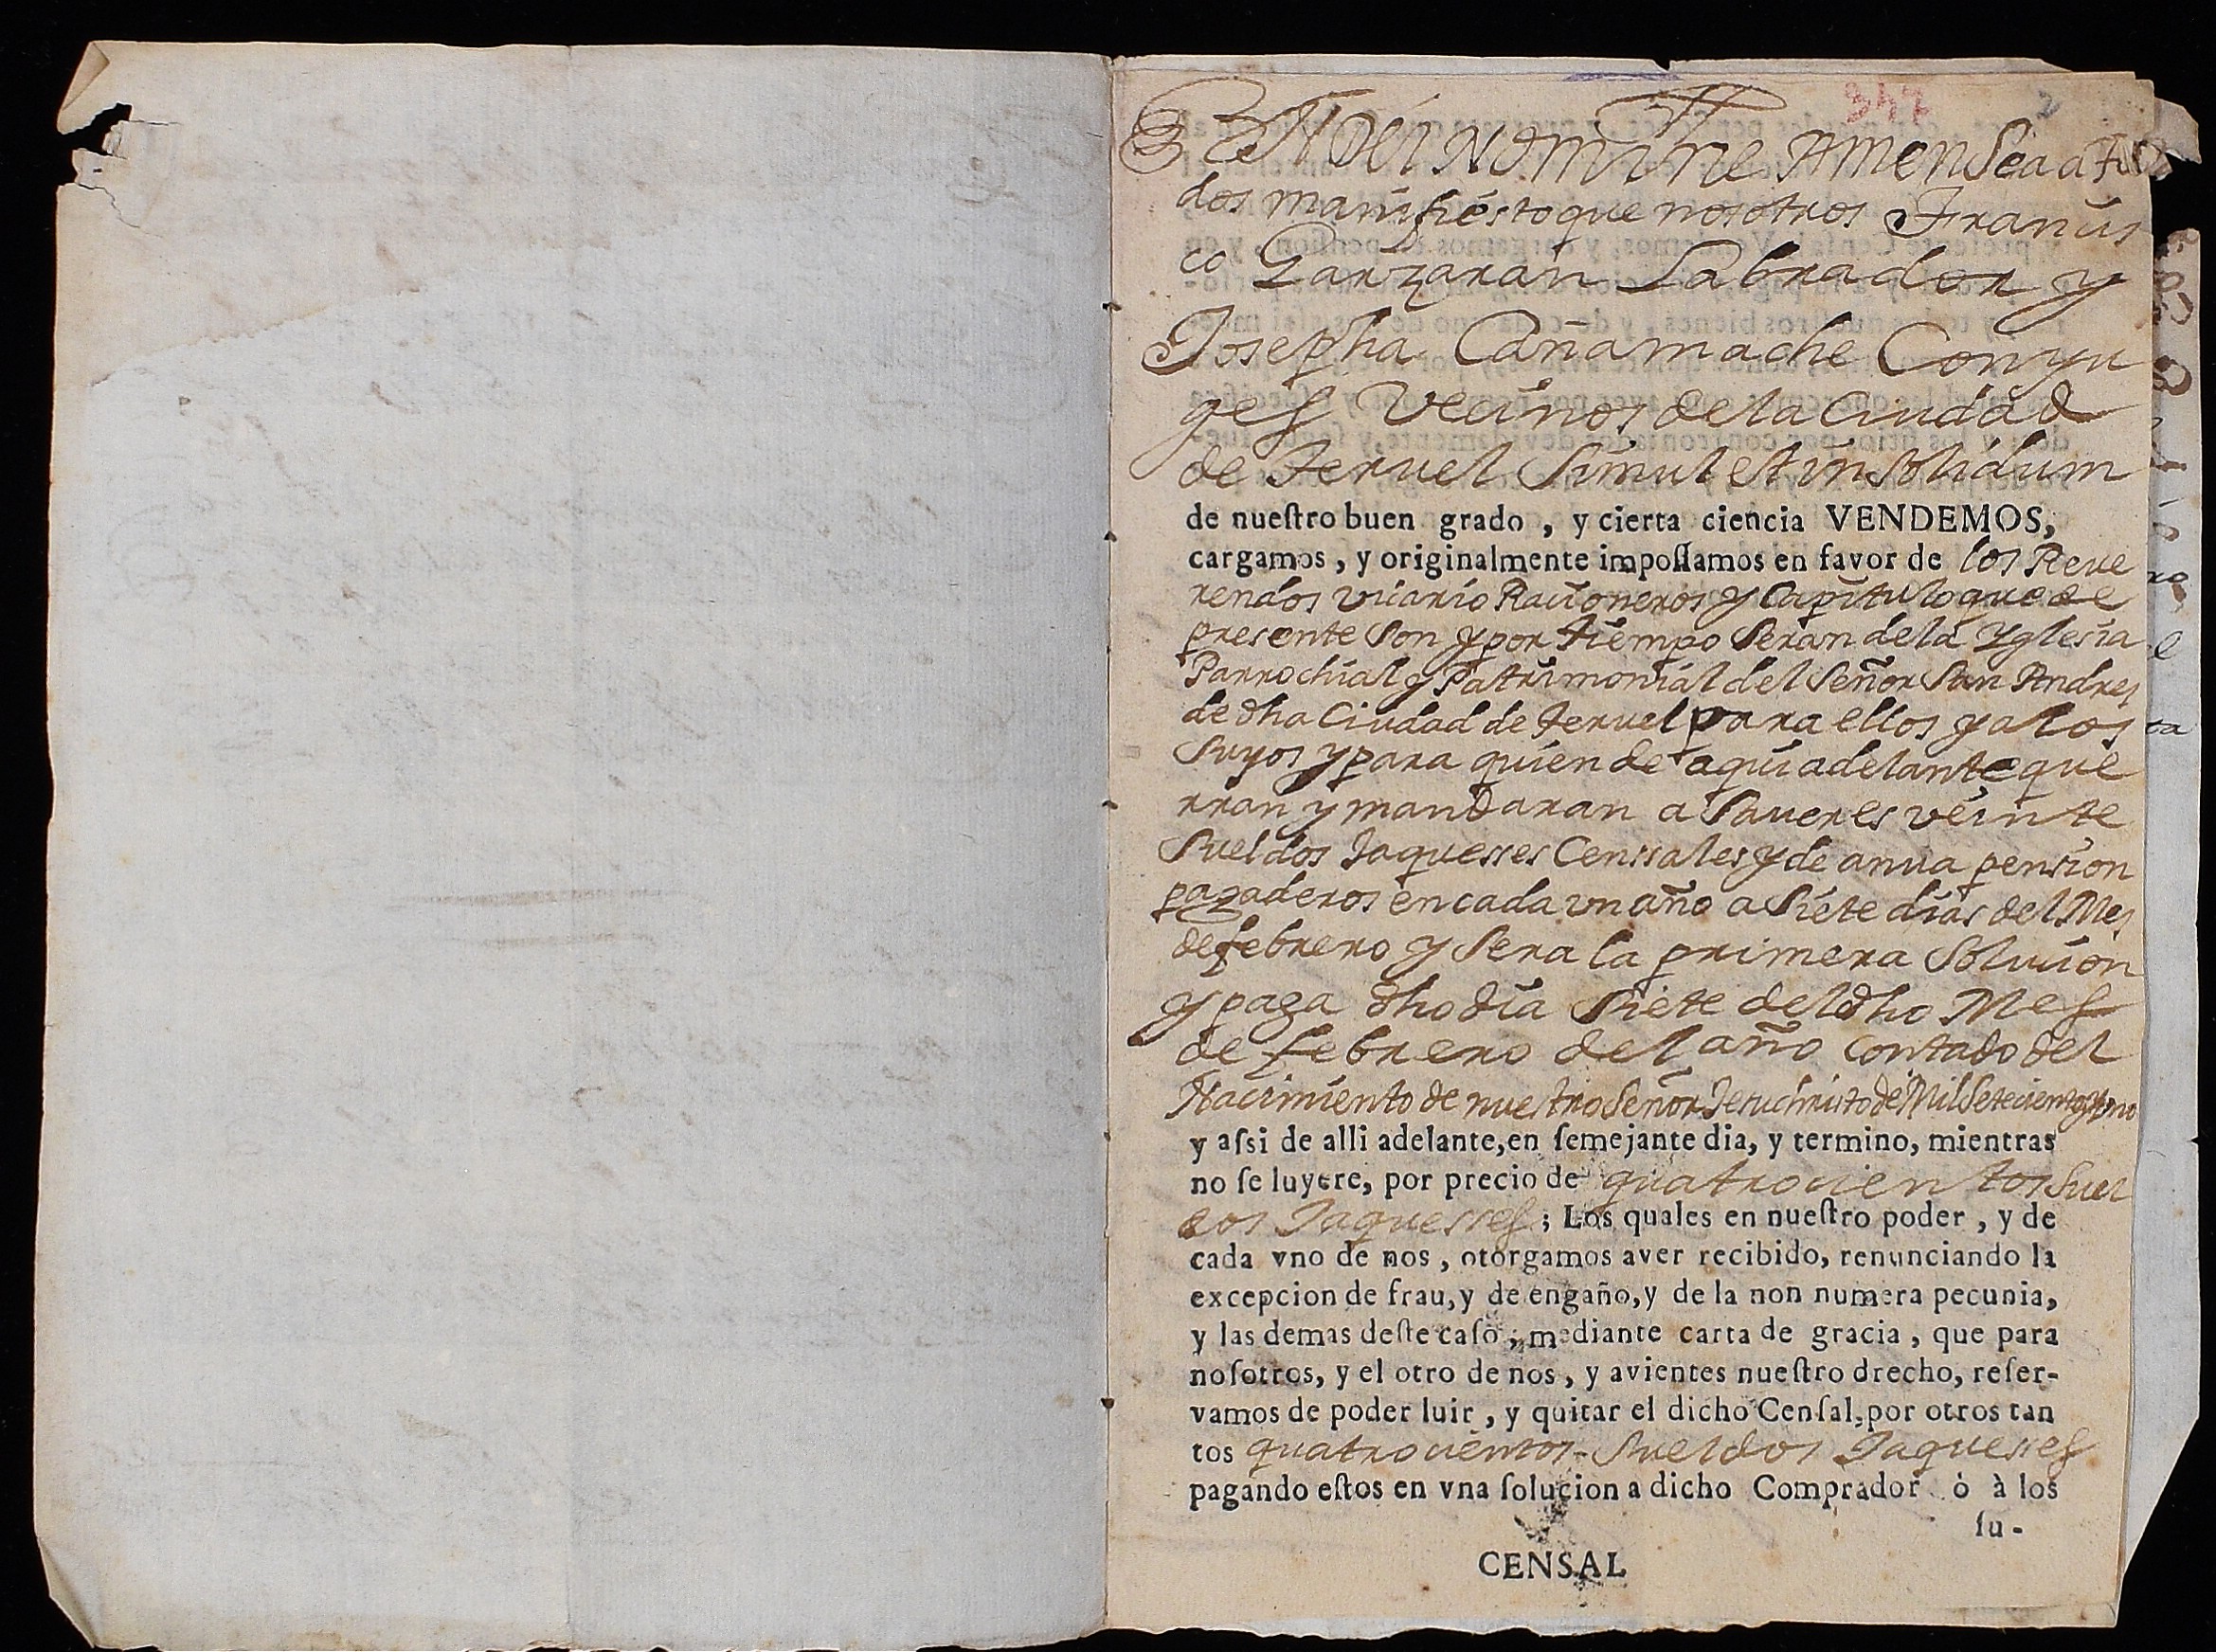 347 2
In Dei Nomine Amen Sea a to
dos manifiesto que nosotros Francis
co Garzaran Labrador y
Josepha Cañamache Conyu
ges Vecinos de la Ciudad
de Teruel Simul et in Solidum
de nueſtro buen grado , y cierta ciencia VENDEMOS,
cargamos , y originalmente impoſſamos en favor de los Reve
rendos vicario Racioneros y Capitulo que de
presente son y por tiempo seran de la Yglesia
Parrochial y Patrimonial del Señor San Andres
de dha Ciudad de Teruel para ellos y a los
suyos y para quien de aqui adelante que
rran y mandaran a Saver es veinte
Sueldos Jaquesses Censsales y de anua pension
pagaderos en cada vn año a Siete dias del Mes
de febrero y sera la primera Solucion
y paga dho dia Siete del dho Mes
de febrero del año contado del
Nacimiento de nuestro Señor Jesuchristo de Mil Setecientos y vno
y aſsi de alli adelante,en ſemejante dia, y termino, mientras
no ſe luyere, por precio de quatrocientos Suel
dos Jaquesses ; Los quales en nueſtro poder , y de
cada vno de nos , otorgamos aver recibido, renunciando la
excepcion de frau,y de engaño,y de la non numera pecunia,
y las demas deſte caſo , mediante carta de gracia , que para
noſotros, y el otro de nos , y avientes nueſtro drecho, reſer-
vamos de poder luir , y quitar el dicho Cenſal,por otros tan
tos quatrocientos Sueldos Jaquesses
pagando eſtos en vna ſolucion a dicho Comprador ò à los
ſu-
CENSAL